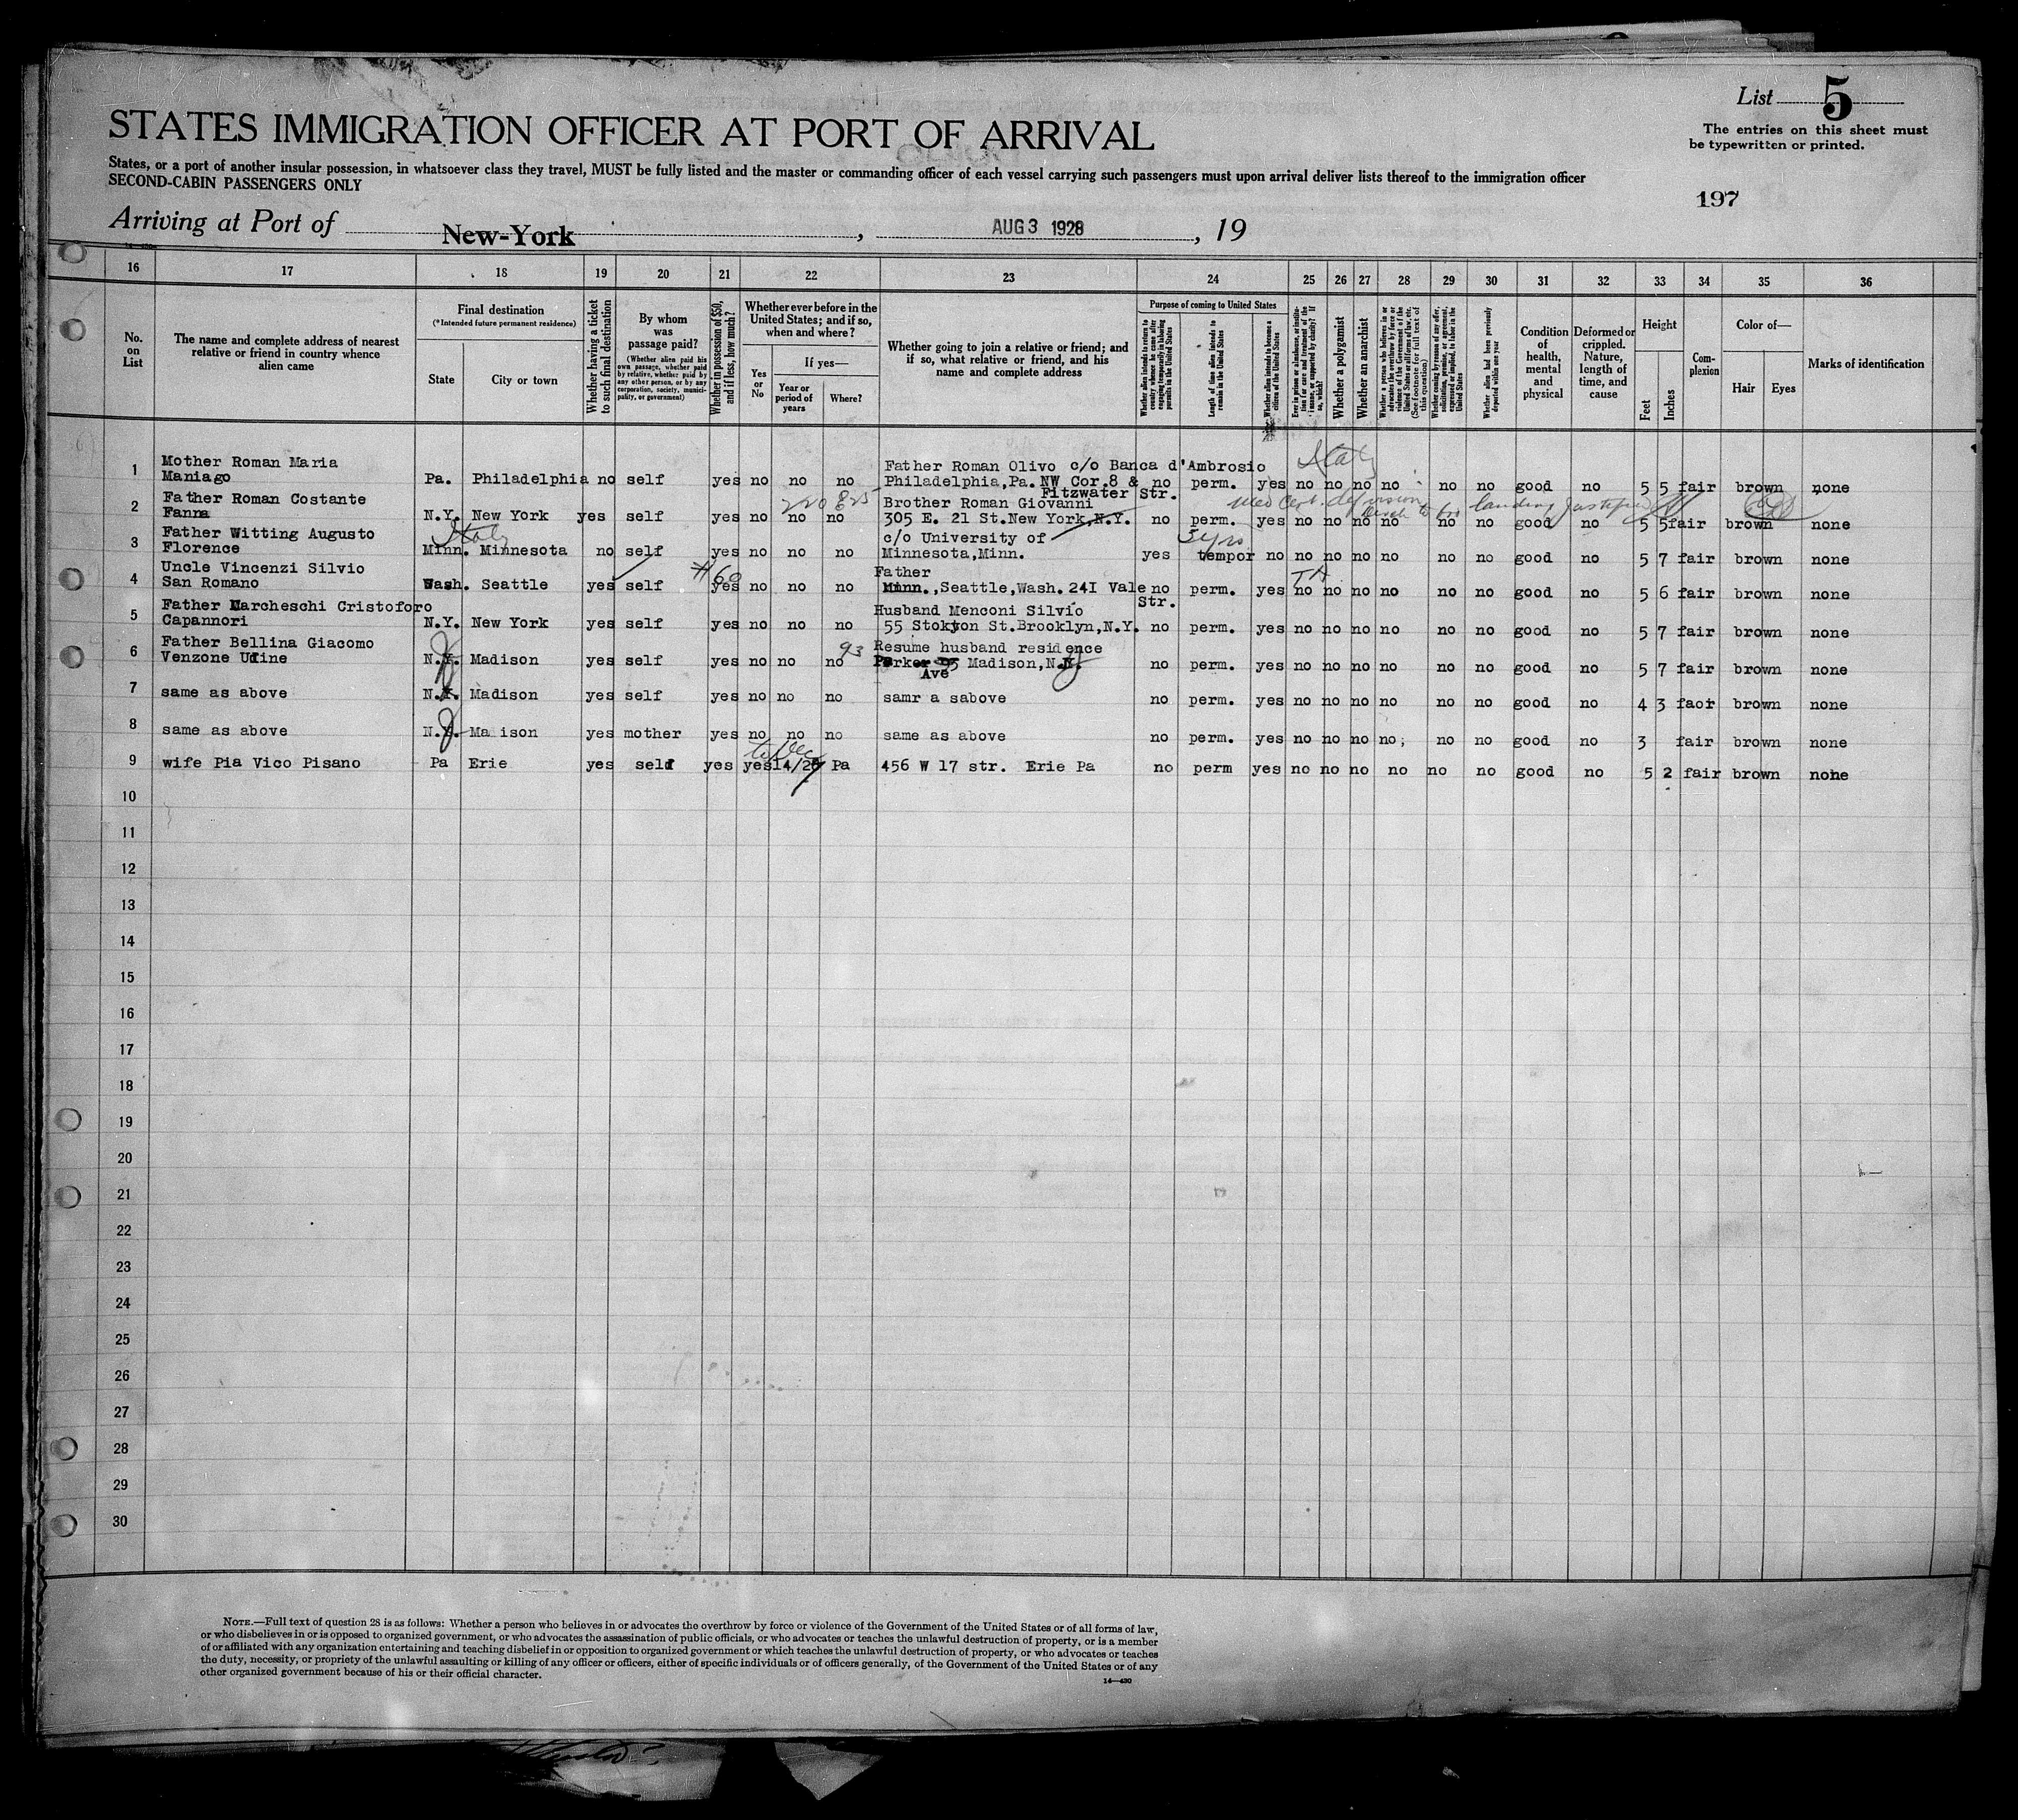 List 5
The entries on this sheet must
be typewritten or printed.
STATES IMMIGRATION OFFICER AT PORT OF ARRIVAL
States, or a port of another insular possession, in whatsoever class they travel, MUST be fully listed and the master or commanding officer of each vessel carrying such passengers must upon arrival deliver lists thereof to the immigration officer
SECOND-CABIN PASSENGERS ONLY
197
Arriving at Port of New-York, AUG 3 1928, 19
16 17 18 19 20 21 22 23 24 25 26 27 28 29 30 31 32 33 34 35 36
No. on List
The name and complete address of nearest relative or friend in country whence alien came
Final destination
(*Intended future permanent residence)
State
City or town
Whether having a ticket to such final destination
By whom was passage paid?
(Whether alien paid his own passage, whether paid by relative, whether paid by any other person, or by any corporation, society, municipality, or government)
Whether in possession of $50, and if less, how much?
Whether ever before in the United States; and if so, when and where?
Yes or No
If yes—
Year or period of years
Where?
Whether going to join a relative or friend; and if so, what relative or friend, and his name and complete address
Purpose of coming to United States
Whether alien intends to return to country whence he came after engaging temporarily in laboring pursuits in the United States
Length of time alien intends to remain in the United States
Whether alien intends to become a citizen of the United States
Whether a polygamist
Whether an anarchist
Condition of health, mental and physical
Deformed or crippled. Nature, length of time, and cause
Height
Feet
Inches
Complexion
Color of—
Hair
Eyes
Marks of identification
Italy
1 Mother Roman Maria Father Roman Olivo c/o Banca d'Ambrosio
Maniago Pa. Philadelphia no self yes no no no Philadelphia,Pa. NW Cor.8 & no perm. yes no no no no no no good no 5 5 fair brown none
Fitzwater Str.
220 825
2 Father Roman Costante Brother Roman Giovanni
Fanna N.Y. New York yes self yes no no no 305 E. 21 St.New York,N.Y. no perm. yes no no no no no no good no 5 5 fair brown none
Italy
5 yrs
3 Father Witting Augusto c/o University of
Florence Minn. Minnesota no self yes no no no Minnesota,Minn. yes tempor no no no no no no no good no 5 7 fair brown none
#60
4 Uncle Vincenzi Silvio Father
San Romano Wash. Seattle yes self yes no no no Minn.,Seattle,Wash. 241 Vale no perm. yes no no no no no no good no 5 6 fair brown none
Str.
5 Father Marcheschi Cristoforo Husband Menconi Silvio
Capannori N.Y. New York yes self yes no no no 55 Stokton St.Brooklyn,N.Y. no perm. yes no no no no no no good no 5 7 fair brown none
93
6 Father Bellina Giacomo Resume husband residence
Venzone Udine N.J. Madison yes self yes no no no Parker 95 Madison,N.J. no perm. yes no no no no no no good no 5 7 fair brown none
Ave
7 same as above N.J. Madison yes self yes no no no samr a sabove no perm. yes no no no no no no good no 4 3 faor brown none
8 same as above N.J. Ma ison yes mother yes no no no same as above no perm. yes no no no no; no no good no 3 fair brown none
9 wife Pia Vico Pisano Pa Erie yes self yes yes 14/27 Pa 456 W 17 str. Erie Pa no perm yes no no no no no no good no 5 2 fair brown none
10
11
12
13
14
15
16
17
18
19
20
21
22
23
24
25
26
27
28
29
30
NOTE.—Full text of question 28 is as follows: Whether a person who believes in or advocates the overthrow by force or violence of the Government of the United States or of all forms of law,
or who disbelieves in or is opposed to organized government, or who advocates the assassination of public officials, or who advocates or teaches the unlawful destruction of property, or is a member
of or affiliated with any organization entertaining and teaching disbelief in or opposition to organized government or which teaches the unlawful destruction of property, or who advocates or teaches
the duty, necessity, or propriety of the unlawful assaulting or killing of any officer or officers, either of specific individuals or of officers generally, of the Government of the United States or of any
other organized government because of his or their official character.
14—430